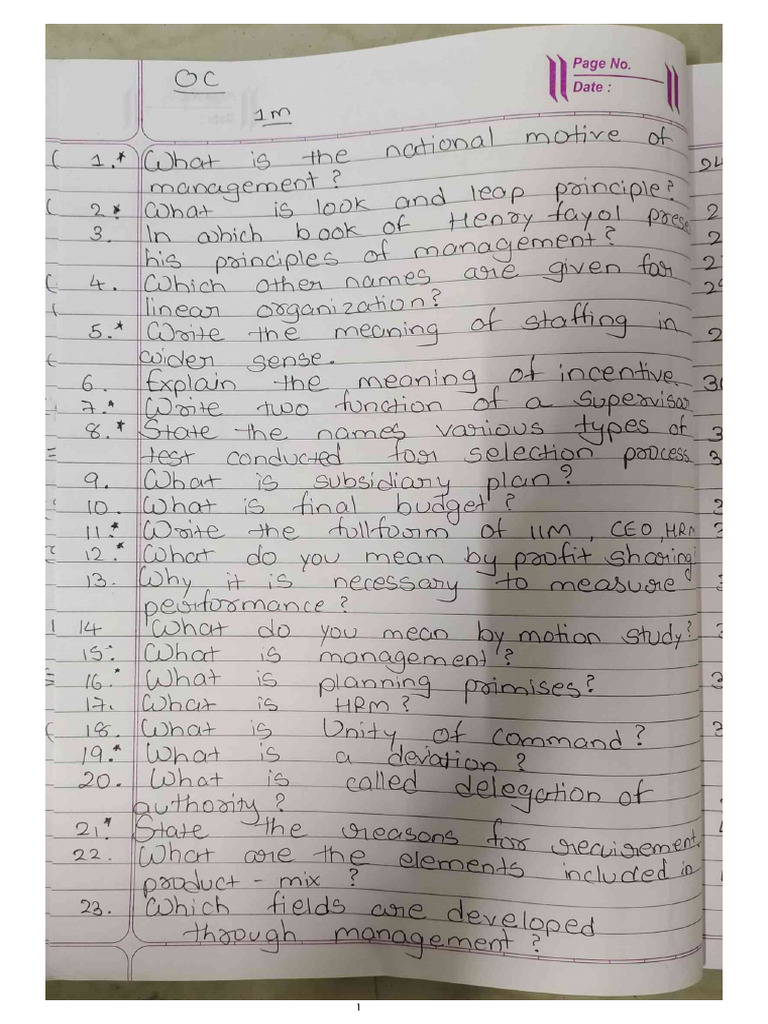 Page No.
Date :
OC
1m
1.* What is the national motive of
management?
2* What is look and leap principle?
3. In which book of Henry fayol prese
his principles of management?
4. Which other names are given for
linear organization?
5.* Write the meaning of staffing in
wider sense.
6. Explain the meaning of incentive
7.* Write two function of a supervisor
8.* State the names various types of
test conducted for selection process
9. What is subsidiary plan?
10. What is final budget?
11.* Write the fullform of IIM, CEO, HRM
12.* What do you mean by profit sharing
13. Why it is necessary to measure
performance?
14 What do you mean by motion study?
15. What is management?
16.* What is planning primises?
17. What is HRM?
18. What is Unity of command?
19.* What is a devation?
20. What is called delegation of
authority?
21.* State the reasons for recuirement.
22. What are the elements included in
product - mix ?
23. Which fields are developed
through management?
1